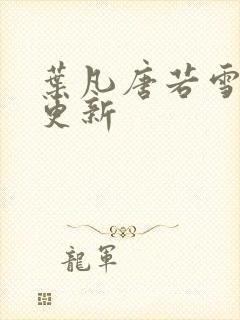 葉凡唐若雪
更新
龍軍